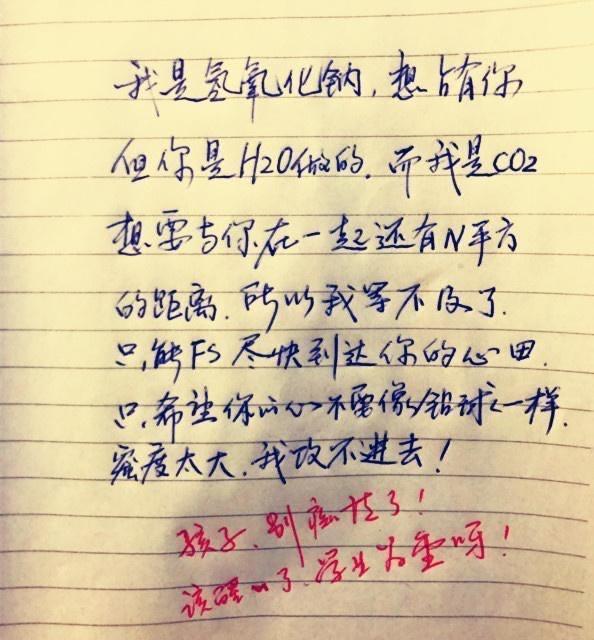 我是氢氧化钠，想占有你
但你是H2O做的，而我是CO2
想要与你在一起还有N平方
的距离，所以我等不及了，
只能FS尽快到达你的心田，
只希望你的心不要像铅球一样，
密度太大，我攻不进去！
孩子，别痴情了！
该醒醒了，学业为重呀！